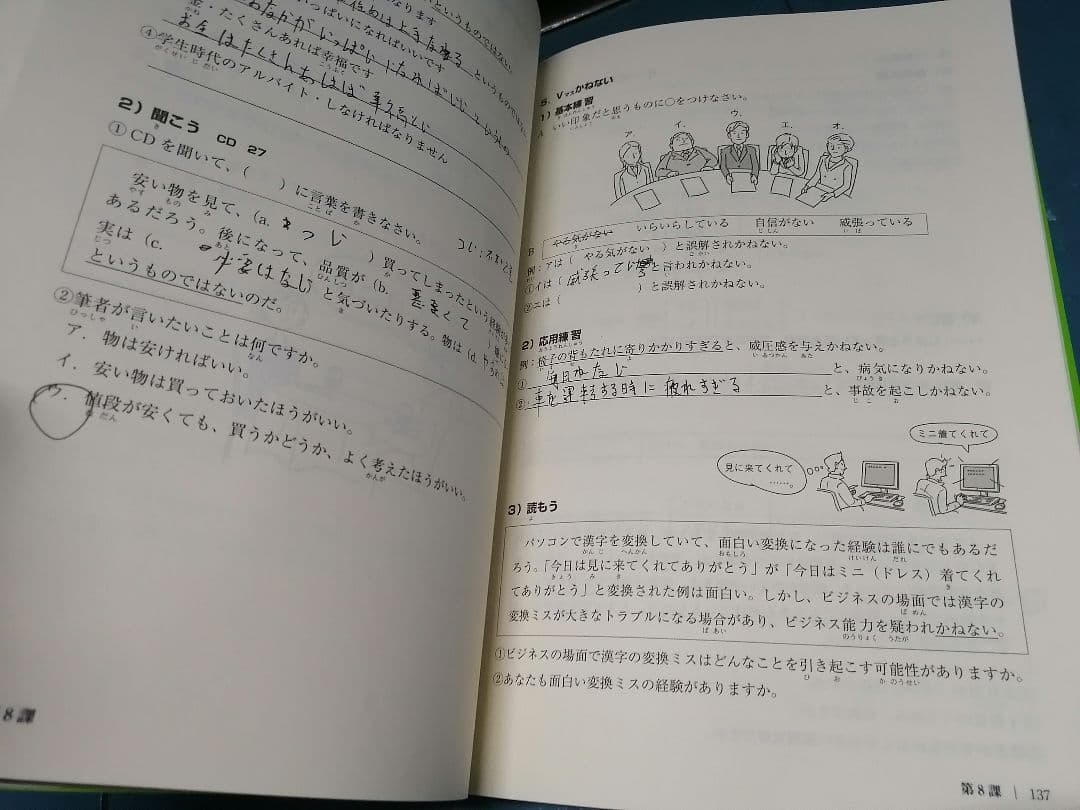 というものではない。
いっぱいになればいいです
というもので
・たくさんあれば幸福です
こうふく
④学生時代のアルバイト・しなければなりません
がくせい じだい
2）聞こう CD 27
き
①CDを聞いて、（ ）に言葉を書きなさい。
ことば か
安い物を見て、（a. ）買ってしまったという
やす もの み か
あるだろう。後になって、品質が（b. 悪くて
あと ひんしつ
実は（c. 必要はない と気づいたりする。物は（d.
じつ き
というものではないのだ。
②筆者が言いたいことは何ですか。
ひっしゃ い なん
ア．物は安ければいい。
イ．安い物は買っておいたほうがいい。
ウ．値段が安くても、買うかどうか、よく考えたほうがいい。
ねだん かんが
8課
5．Vマスかねない
1）基本練習
A いい印象だと思うものに○をつけなさい。
いんしょう
ア． イ． ウ． エ． オ．
B やる気がない いらいらしている 自信がない 威張っている
き じしん いば
例：アは（ やる気がない ）と誤解されかねない。
ごかい
①イは（ 威張っている と言われかねない。
②エは（ ）と誤解されかねない。
2）応用練習
おうようれんしゅう
例：椅子の背もたれに寄りかかりすぎると、威圧感を与えかねない。
いす せ よ いあつかん あた
① 毎日 と、病気になりかねない。
びょうき
② 車を運転する時に疲れすぎる と、事故を起こしかねない。
じこ お
ミニ着てくれて
見に来てくれて
……。
3）読もう
よ
パソコンで漢字を変換していて、面白い変換になった経験は誰にでもあるだ
かんじ へんかん おもしろ けいけん だれ
ろう。「今日は見に来てくれてありがとう」が「今日はミニ（ドレス）着てくれ
きょう み き き
てありがとう」と変換された例は面白い。しかし、ビジネスの場面では漢字の
ばめん
変換ミスが大きなトラブルになる場合があり、ビジネス能力を疑われかねない。
ばあい のうりょく うたが
①ビジネスの場面で漢字の変換ミスはどんなことを引き起こす可能性がありますか。
ひ お かのうせい
②あなたも面白い変換ミスの経験がありますか。
第8課 | 137